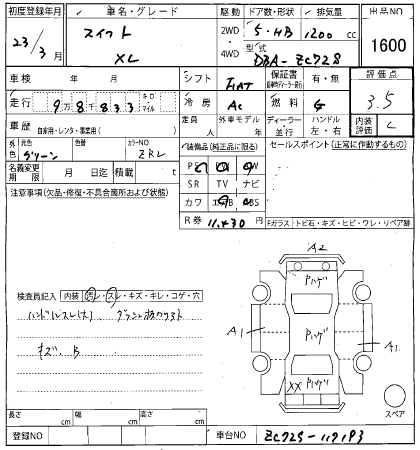 初度登録年月 車名・グレード 駆動 ドア数・形状 排気量 出品NO
23/3月 スイフト XL 2WD 4WD 5・HB 1200 cc 1600
型式 DBA-ZC72S
車検 年 月 シフト FAT 保証書 有・無 評価点
走行 9万8千833 キロ マイル 冷房 AC 燃料 G 3.5
車歴 自家用・レンタ・事業用( ) 定員 人 外車モデル 年 ディーラー 並行 ハンドル 左・右 内装評価 C
外色 元色 グリーン 色番 カラーNO ZRL
装備品(純正品に限る) セールスポイント(正常に作動するもの)
名義変更期限 月 日迄 積載 t
PS PW
SR TV ナビ
カワ エアB ABS
注意事項(欠品・修復・不具合箇所および状態)
R券 11,430 円
Fガラス トビ石・キズ・ヒビ・ワレ・リペア跡
A2
検査員記入 内装 汚レ・スレ・キズ・キレ・コゲ・穴
ハンドルスレ(大)
キズ、B
A1
A1
XX
スペア
長さ cm 幅 cm 高さ cm
登録NO 車台NO